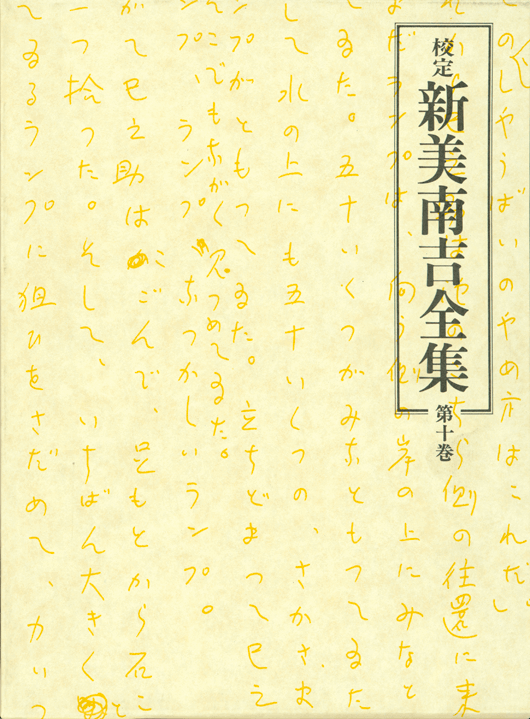 校定
新美南吉全集
第十巻
のしやうばいのやめ方はこれだい
側の往還に来
まだランプは、向う側の岸の上にみなと
てゐた。五十いくつがみなともつてゐた
して水の上にも五十いくつの、さかさま
ンプがともつてゐた。立ちどまつて巳之
でもながく見つめてゐた。
ランプ、ランプ、なつかしいランプ。
がて巳之助はこごんで、足もとから石こ
一つ拾つた。そして、いちばん大きくと
てゐるランプに狙ひをさだめて、力いつ